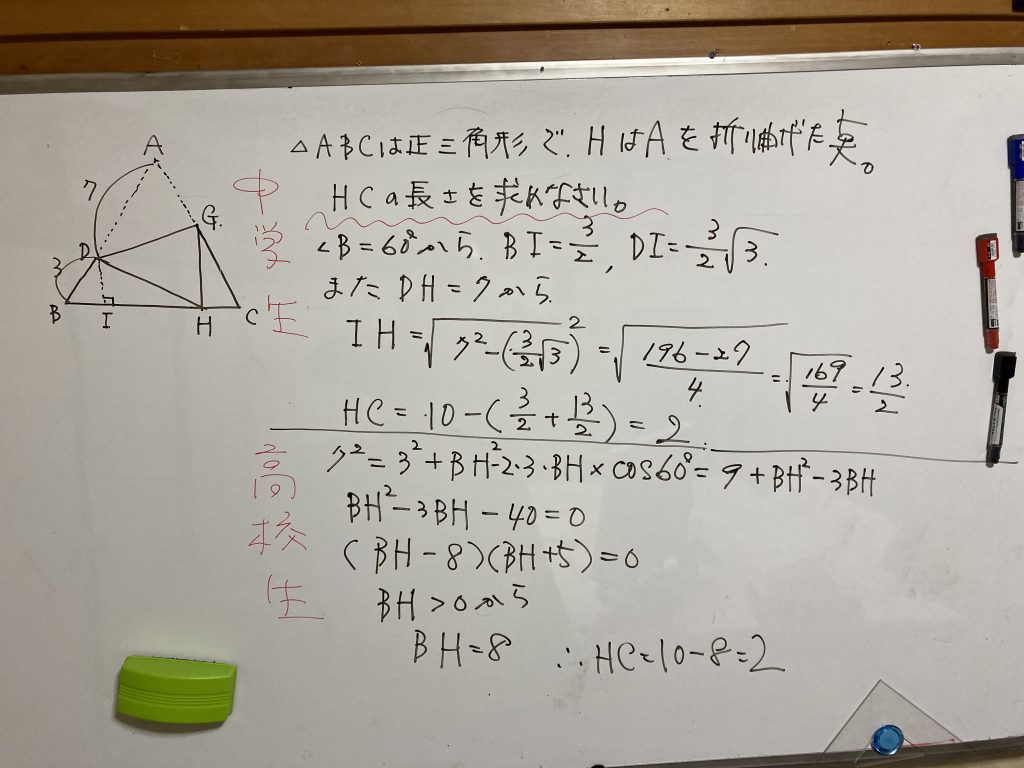 △ABCは正三角形で、HはAを折り曲げた点。
HCの長さを求めなさい。
A
7
G
D
3
B
I
H
C
中学生
∠B=60°から、BI=3/2, DI=3/2√3.
またDH=7から
IH=√(7²-(3/2√3)²)=√((196-27)/4)=√(169/4)=13/2
HC=10-(3/2+13/2)=2.
高校生
7²=3²+BH²-2・3・BH×cos60°=9+BH²-3BH
BH²-3BH-40=0
(BH-8)(BH+5)=0
BH>0から
BH=8 ∴HC=10-8=2